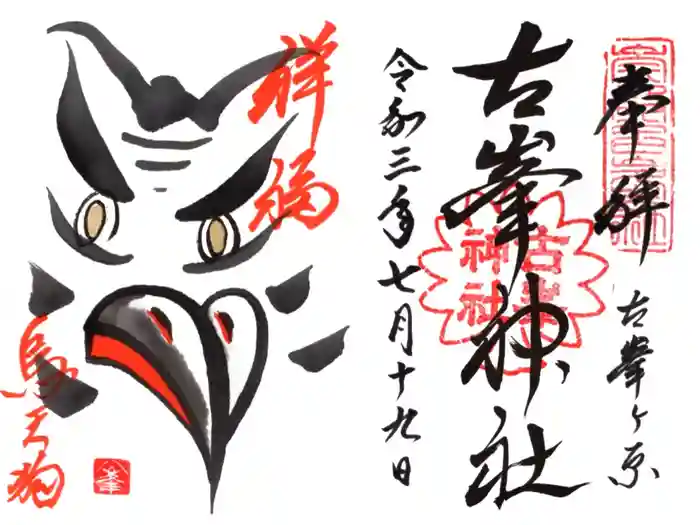 奉拝
古峯ヶ原
古峯神社
古峯神社
令和三年七月十九日
祥福
烏天狗
峯